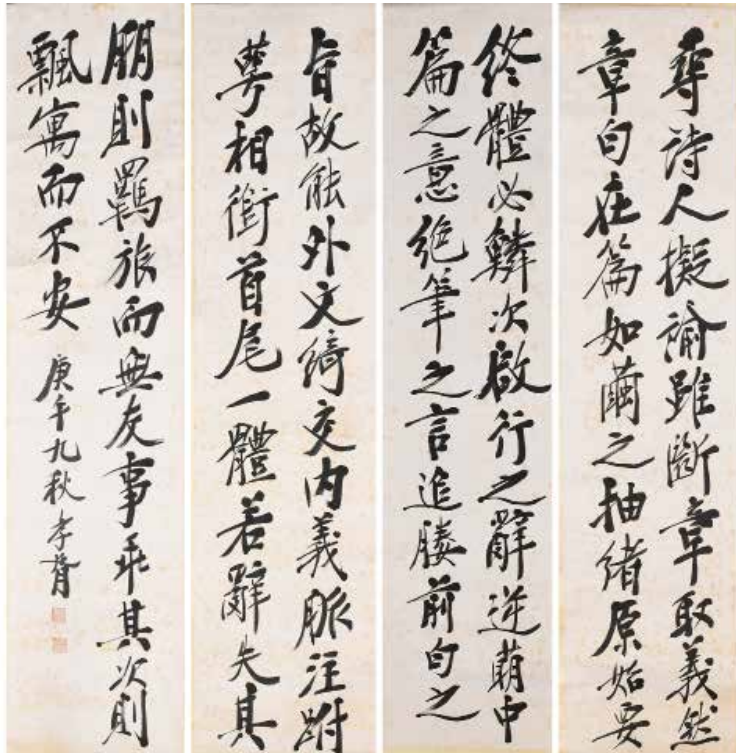 尋詩人擬諭雖斷章取義然
章句在篇如繭之抽緒原始要
終體必鱗次啟行之辭逆萌中
篇之意絕筆之言追媵前句之
旨故能外文綺交內義脈注跗
萼相銜首尾一體若辭失其
朋則羈旅而無友事乖其次則
飄寓而不安
庚午九秋 孝胥